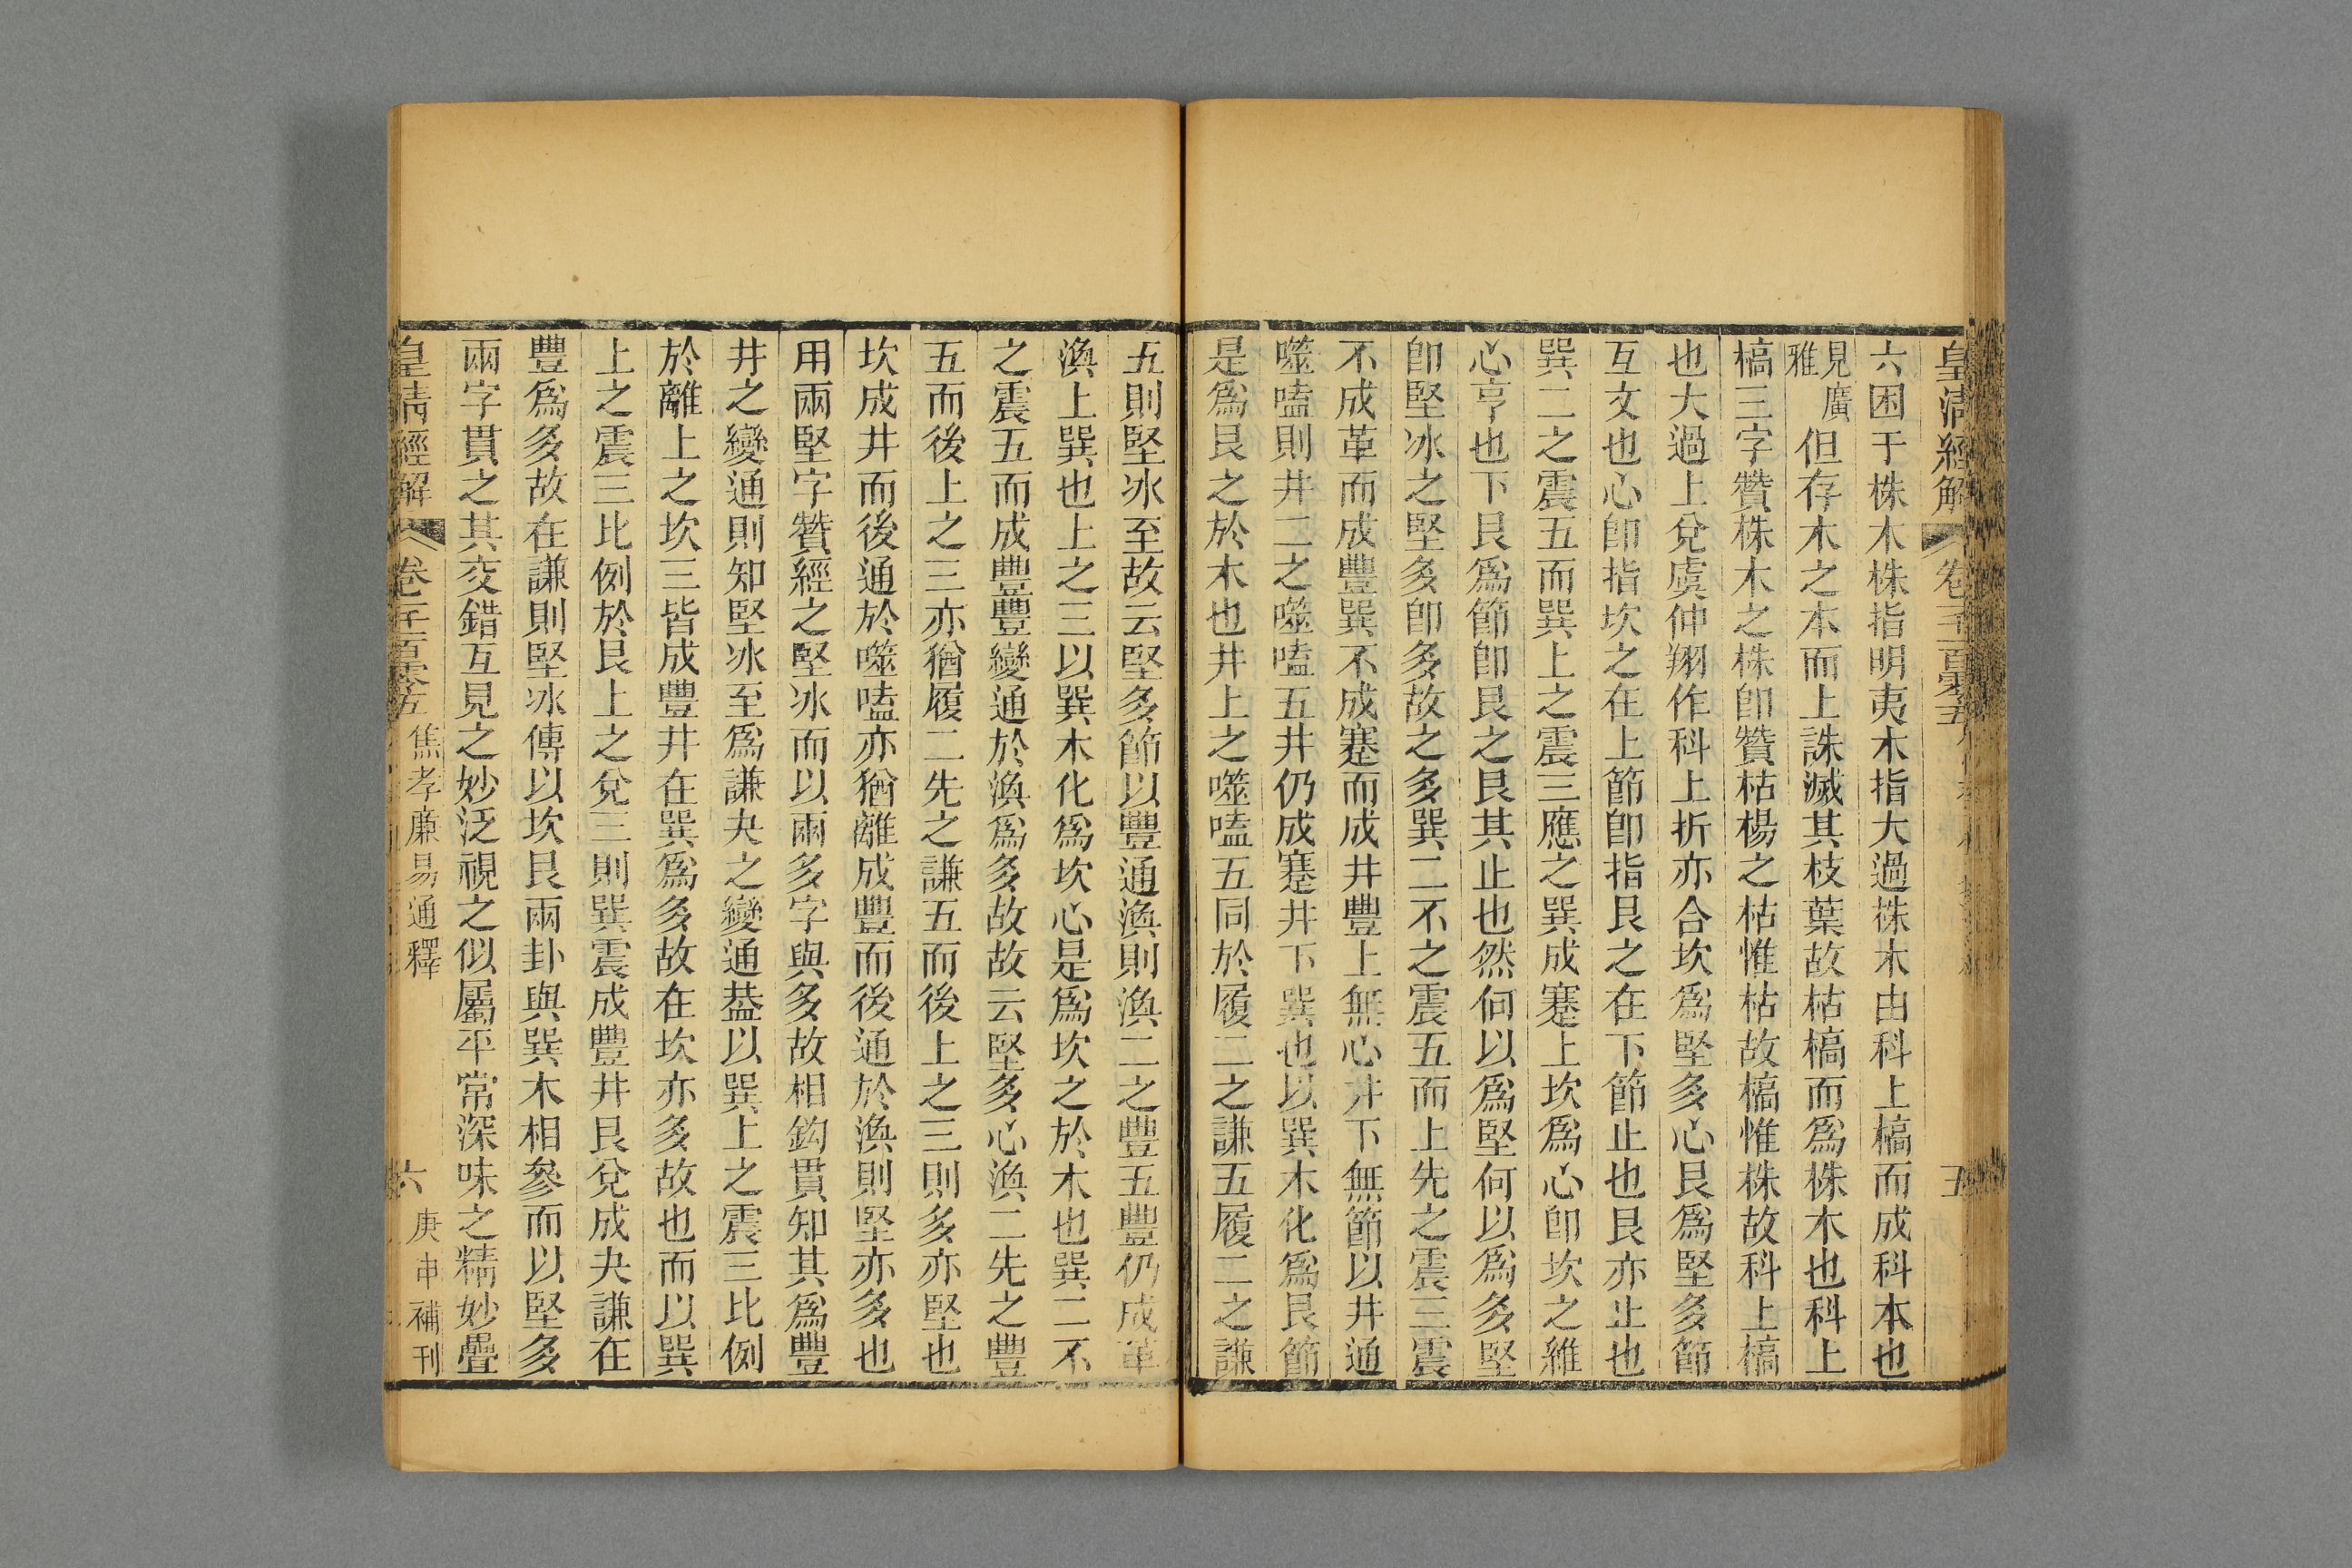 皇清經解 卷一千一百零五 五
六困于株木株指明夷木指大過株木由科上槁而成科本也
見廣雅但存木之本而上誅滅其枝葉故枯槁而爲株木也科上
槁三字贊株木之株卽贊枯楊之枯惟枯故槁惟株故科上槁
也大過上兌虞仲翔作科上折亦合坎爲堅多心艮爲堅多節
互文也心卽指坎之在上節卽指艮之在下節止也艮亦止也
巽二之震五而巽上之震三應之巽成蹇上坎爲心卽坎之維
心亨也下艮爲節卽艮之艮其止也然何以爲堅何以爲多堅
卽堅冰之堅多卽多故之多巽二不之震五而上先之震三震
不成革而成豐巽不成蹇而成井豐上無心井下無節以井通
噬嗑則井二之噬嗑五井仍成蹇井下巽也以巽木化爲艮節
是爲艮之於木也井上之噬嗑五同於履二之謙五履二之謙
五則堅冰至故云堅多節以豐通渙則渙二之豐五豐仍成革
渙上巽也上之三以巽木化爲坎心是爲坎之於木也巽二不
之震五而成豐豐變通於渙爲多故故云堅多心渙二先之豐
五而後上之三亦猶履二先之謙五而後上之三則多亦堅也
坎成井而後通於噬嗑亦猶離成豐而後通於渙則堅亦多也
用兩堅字贊經之堅冰而以兩多字與多故相鈎貫知其爲豐
井之變通則知堅冰至爲謙夬之變通葢以巽上之震三比例
於離上之坎三皆成豐井在巽爲多故在坎亦多故也而以巽
上之震三比例於艮上之兌三則巽震成豐井艮兌成夬謙在
豐爲多故在謙則堅冰傳以坎艮兩卦與巽木相參而以堅多
兩字貫之其交錯互見之妙泛視之似屬平常深味之精妙疊
皇清經解 卷一千一百零五 焦孝廉易通釋 六 庚申補刊